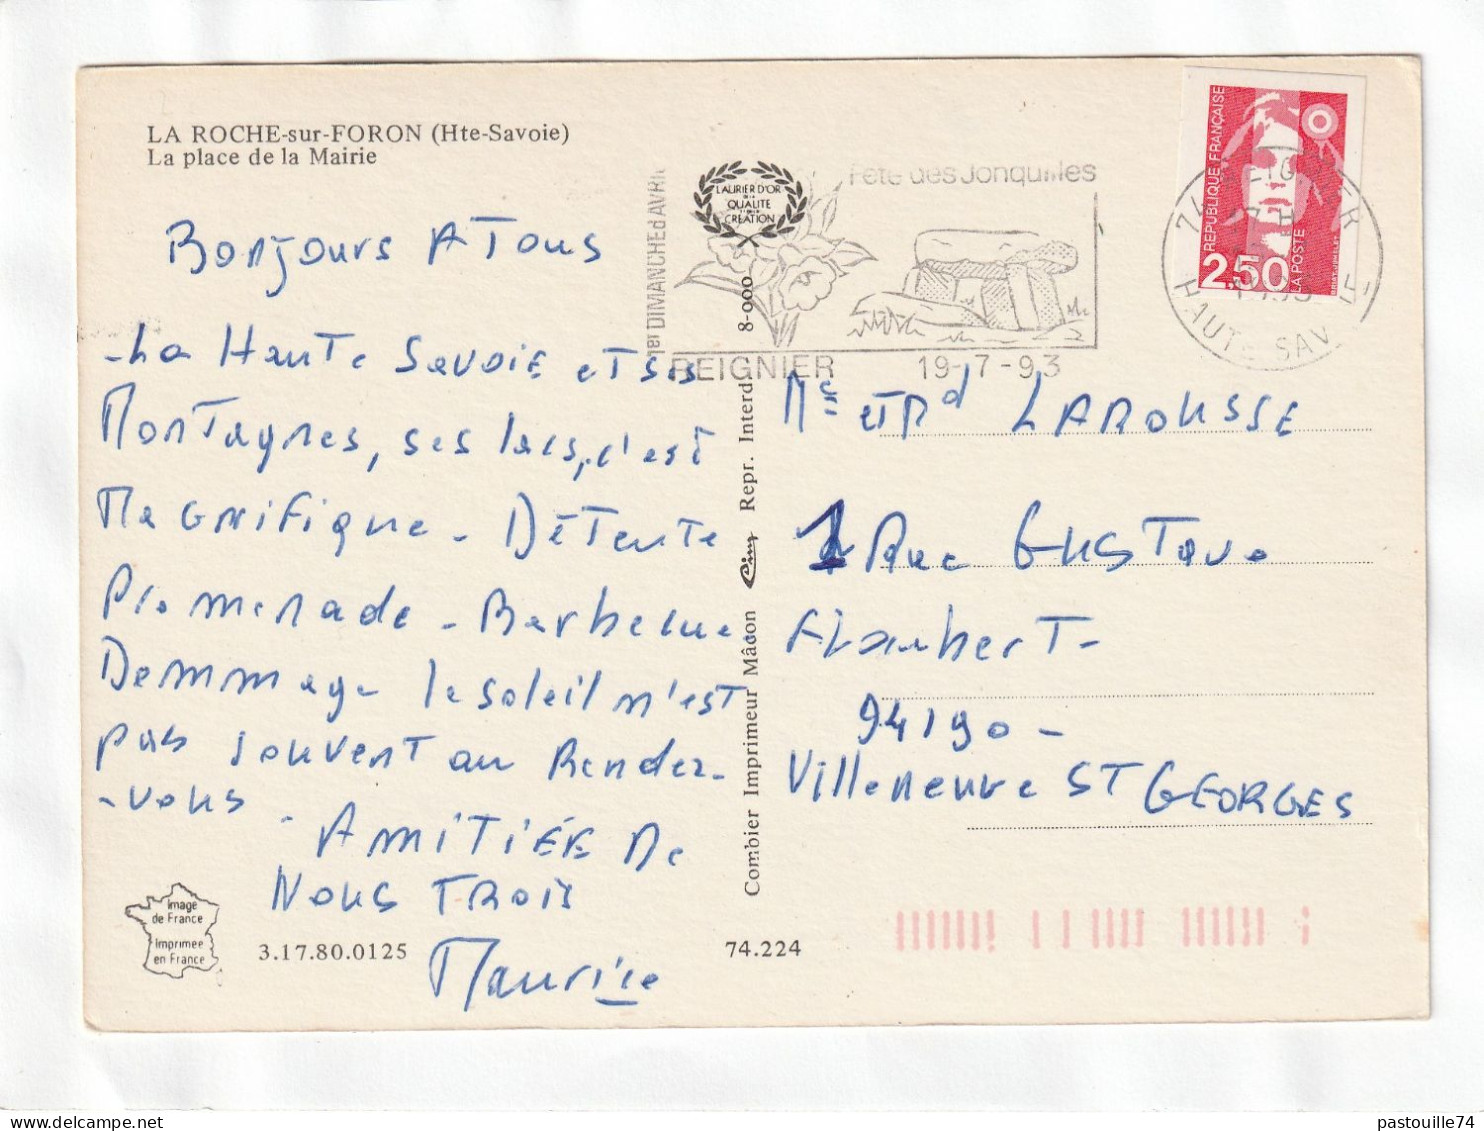 LA ROCHE-sur-FORON (Hte-Savoie)
La place de la Mairie
Bonjours A Tous
-La Haute Savoie et ses
Montagnes, ses lacs, c'est
Magnifique - Détente
Promenade - Barbecue
Dommage le soleil n'est
pas souvent au Rendez-
-vous.
AMITIÉE De
NOUS TROIS
Maurice
Image
de France
Imprimée
en France
3.17.80.0125
74.224
Combier Imprimeur Mâcon Cim Repr. Interd. 8-000
LAURIER D'OR
DE LA
QUALITE
CREATION
1er DIMANCHE d'AVRIL
Fête des Jonquilles
REIGNIER 19-7-93
74 REIGNIER
7 H
HAUTE SAVOIE
REPUBLIQUE FRANÇAISE
2,50
LA POSTE
Mr et Md LAROUSSE
1 Rue Gustave
Flaubert-
94190 -
Villeneuve ST GEORGES
pastouille74